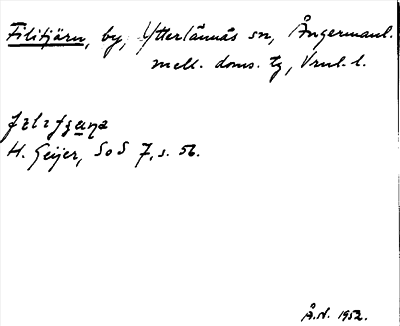 Filitjärn, by, Ytterlännäs sn, Ångermanl.
mell. doms. tg, Vnl. l.
H. Geijer, SoS 7, s. 56.
Å.N. 1952.